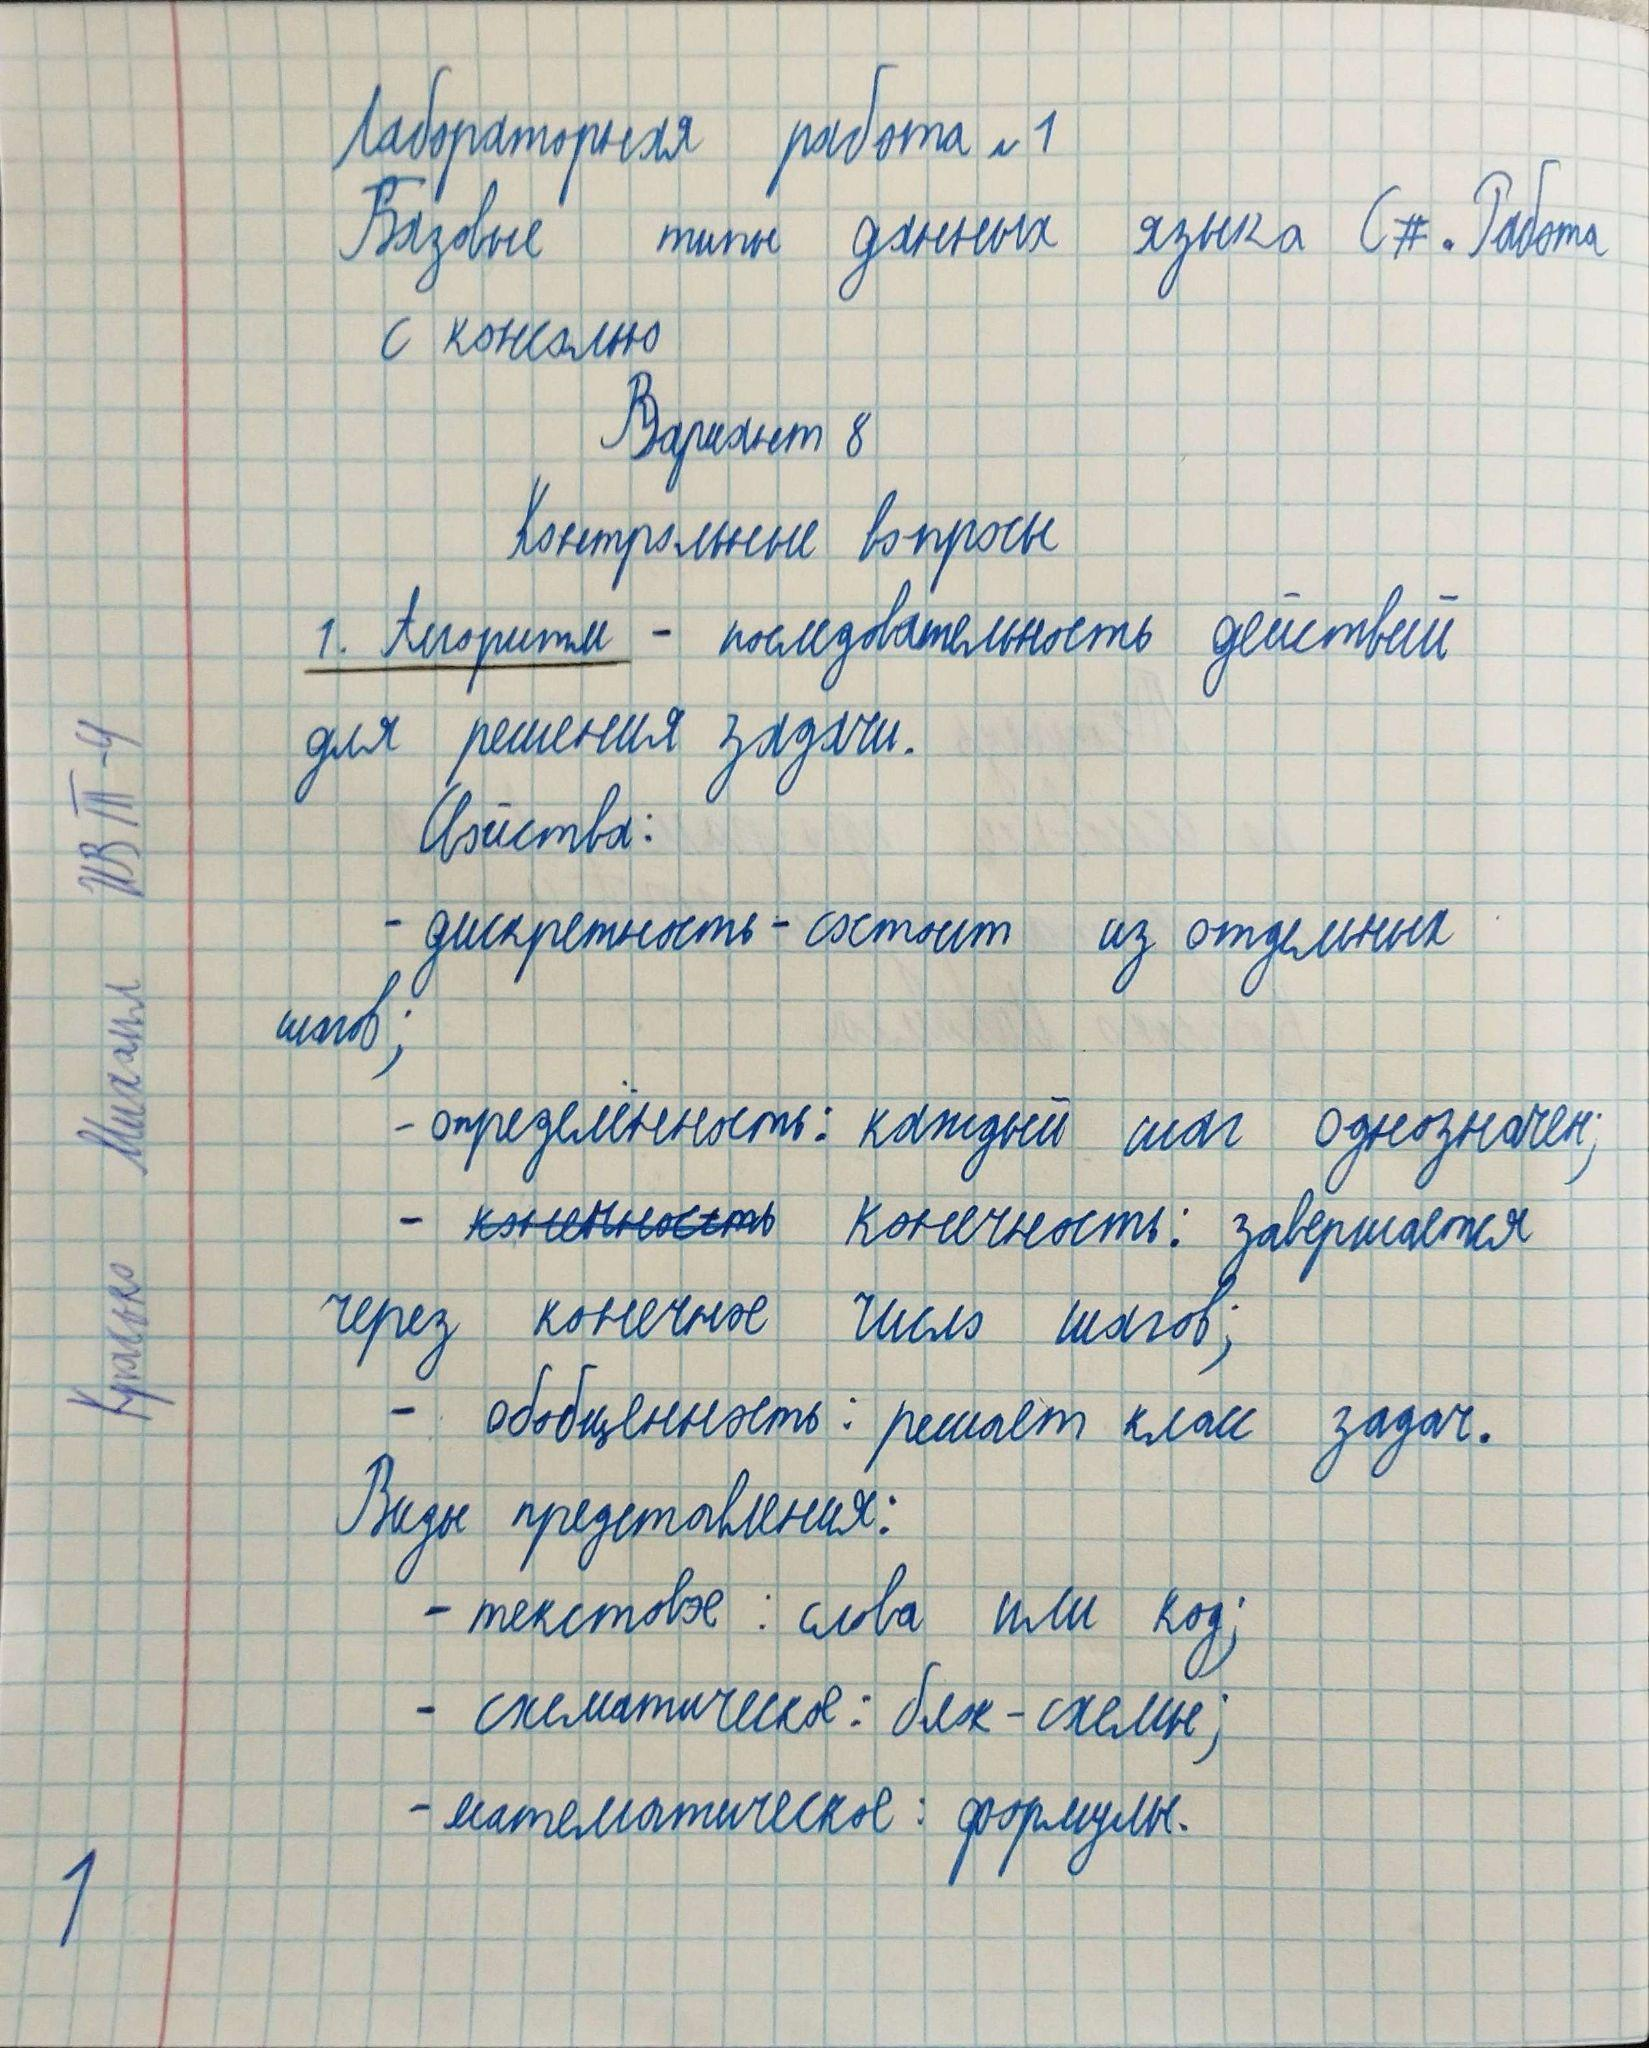 Лабораторная работа №1
Базовые типы данных языка C#. Работа
с консолью
Вариант 8
Контрольные вопросы
1. Алгоритм - последовательность действий
для решения задачи.
Свойства:
- дискретность - состоит из отдельных
шагов;
- определённость: каждый шаг однозначен;
- конечность: завершается
через конечное число шагов;
- обобщенность: решает класс задач.
Виды представления:
- текстовое: слова или код;
- схематическое: блок-схемы;
- математическое: формулы.
1
Михаил ИВТП-4